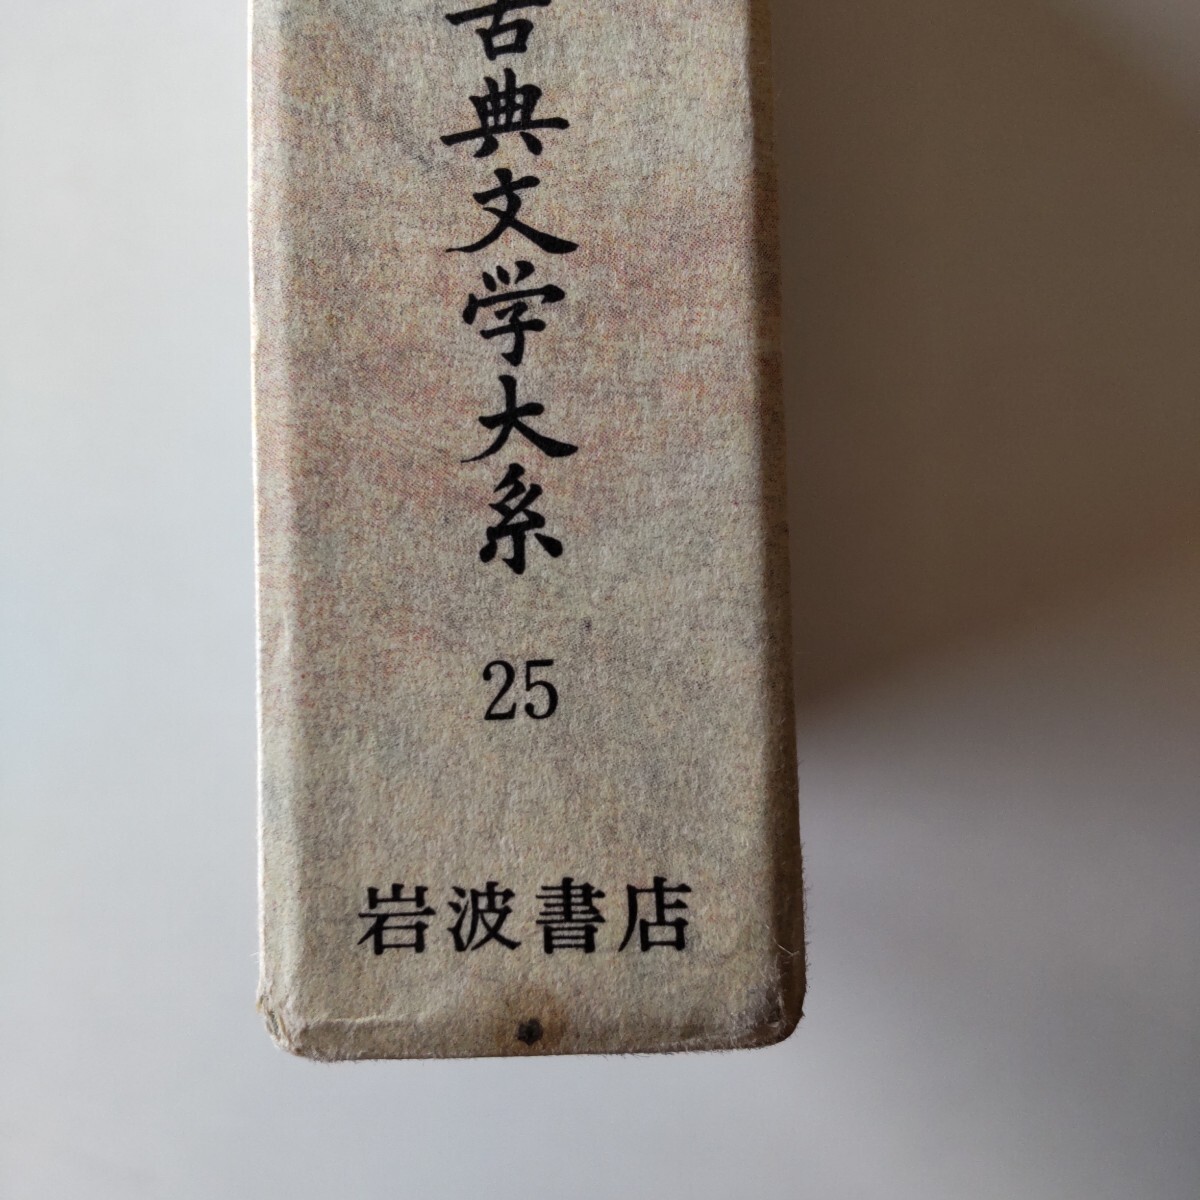 古典文学大系
25
岩波書店